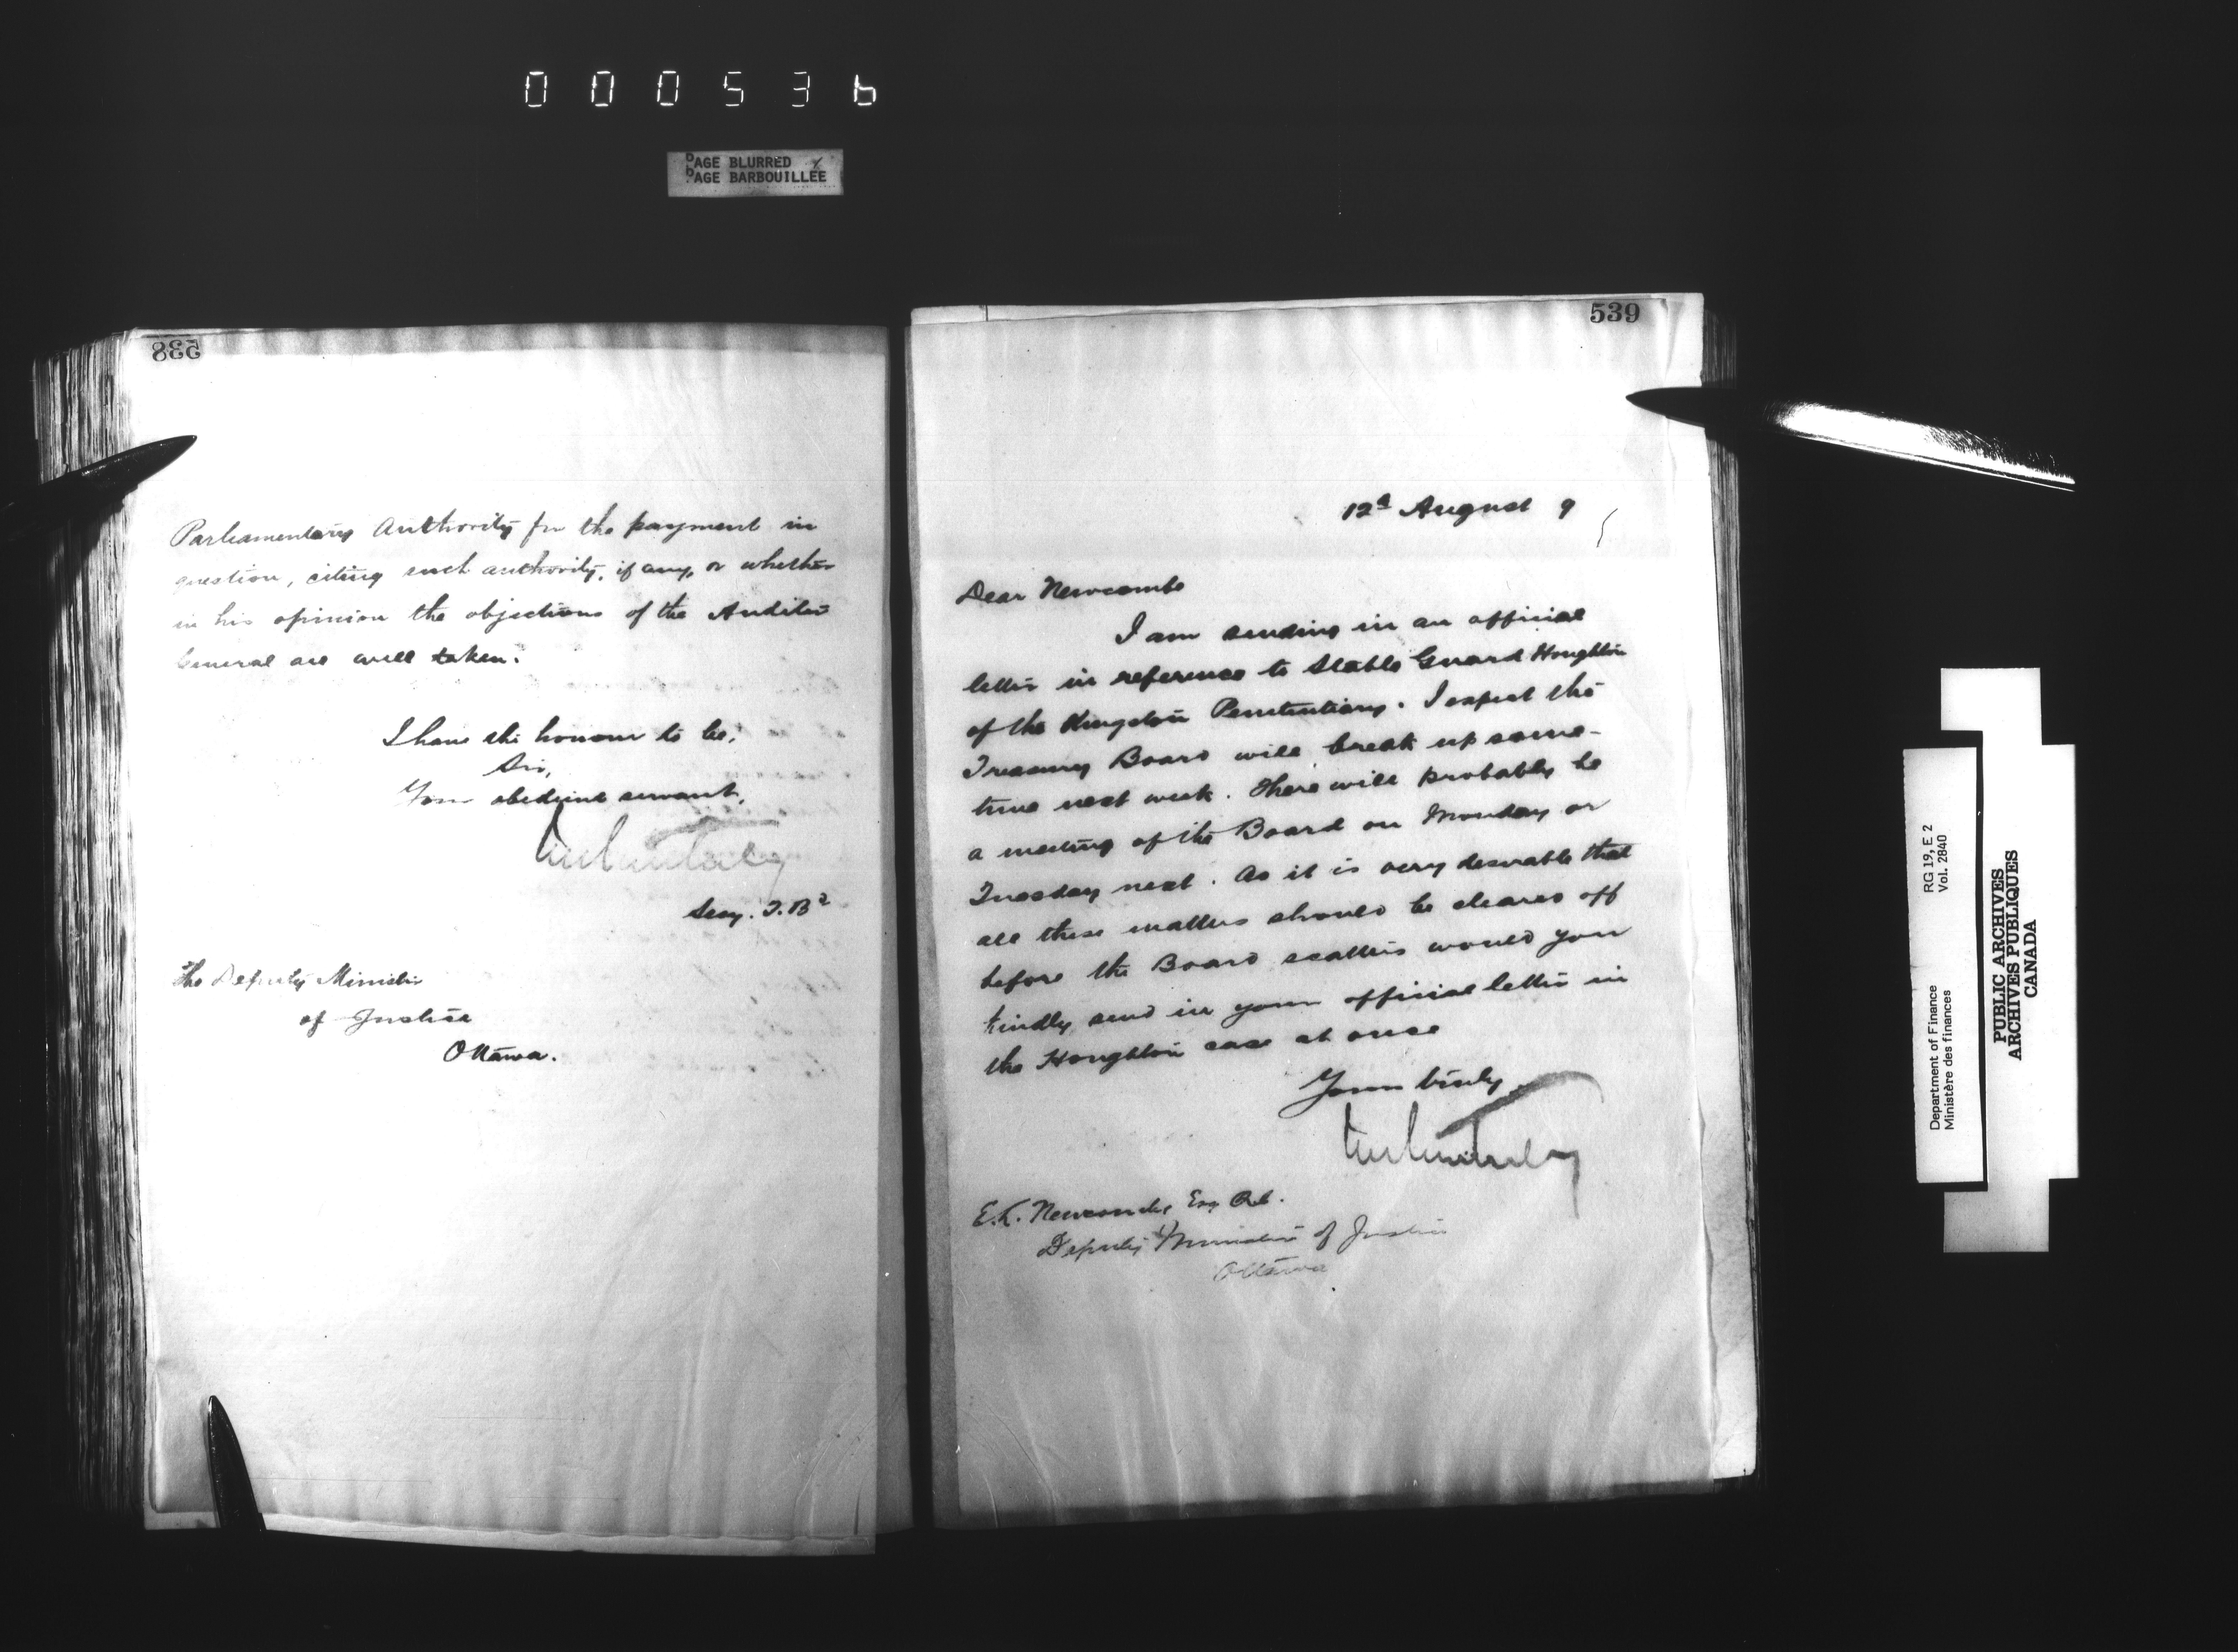 000536
PAGE BLURRED
PAGE BARBOUILLÉE
538
Parliamentary Authority for the payment in
question, citing such authority, if any, or whether
in his opinion the objections of the Auditor
General are well taken.
I have the honour to be,
Sir,
Your obedient servant,
Secy. T.Bd
The Deputy Minister
of Justice
Ottawa.
539
12d August 9
Dear Newcombe
I am sending in an official
letter in reference to Stable Guard Houghton
of the Kingston Penitentiary. I expect the
Treasury Board will break up some-
time next week. There will probably be
a meeting of the Board on Monday or
Tuesday next. As it is very desirable that
all these matters should be cleared off
before the Board scatters would you
kindly send in your official letter in
the Houghton case at once
Yours truly,
E.L. Newcombe, Esq Q.C.
Deputy Minister of Justice
Ottawa
RG 19, E 2
Vol. 2840
Department of Finance
Ministère des finances
PUBLIC ARCHIVES
ARCHIVES PUBLIQUES
CANADA